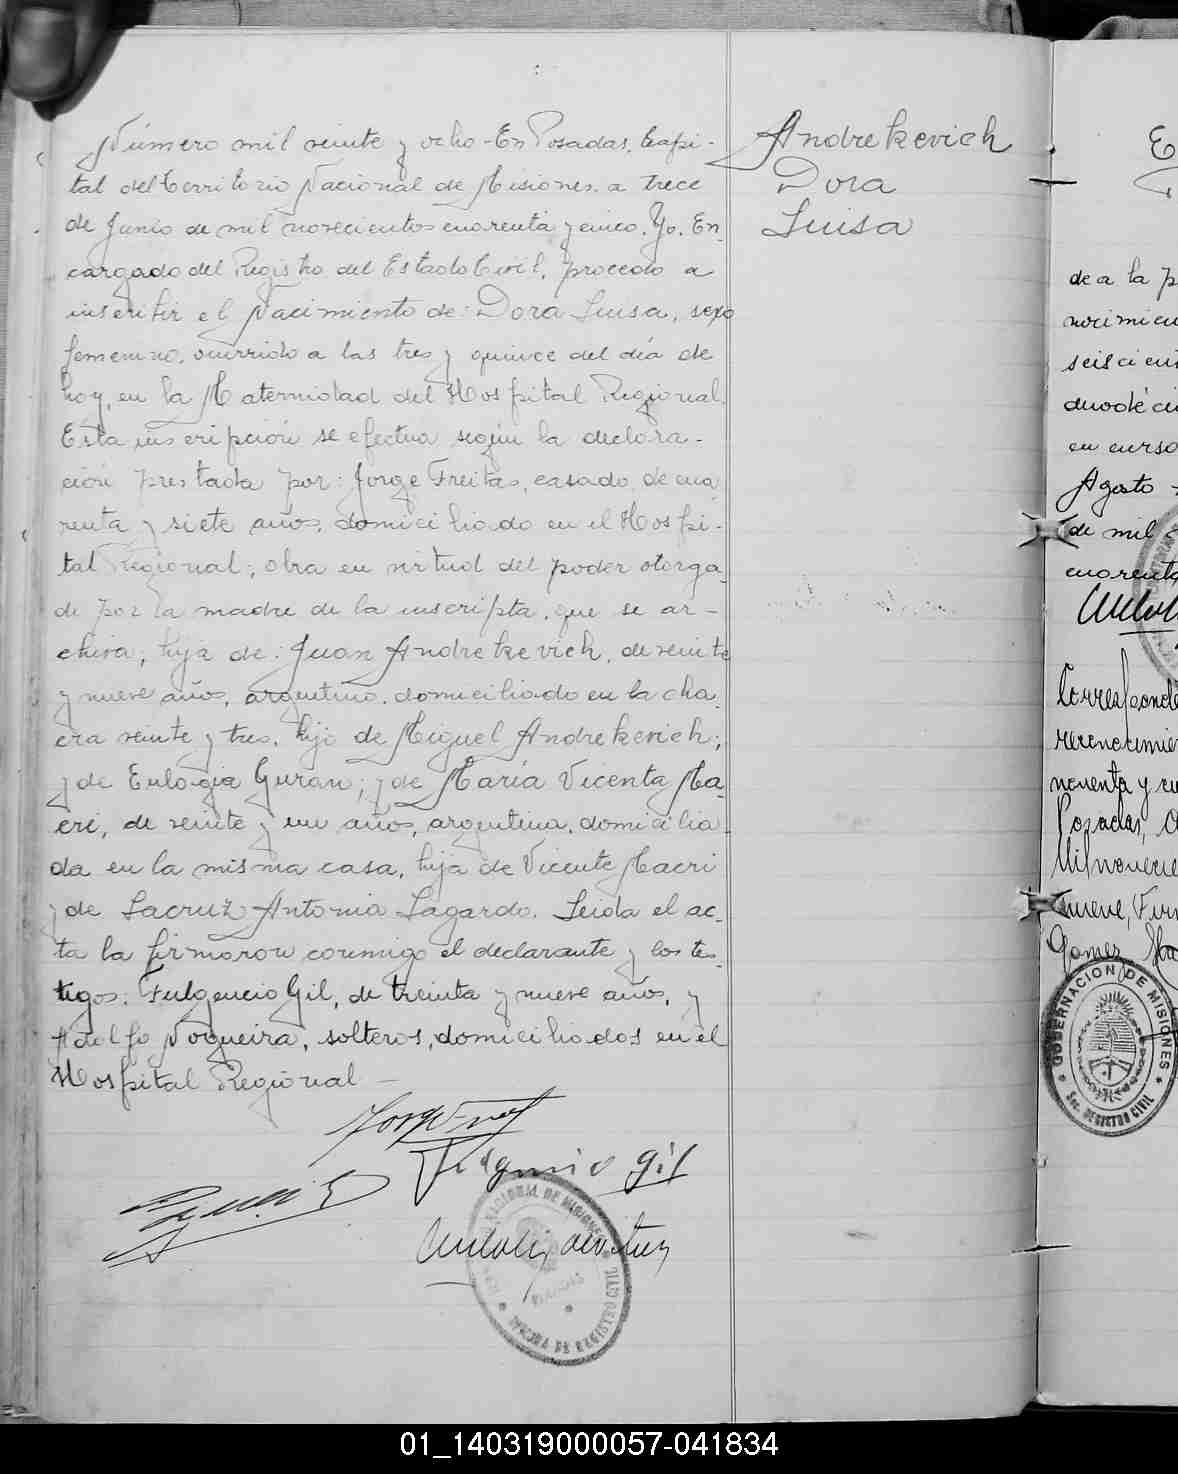 Número mil veinte y ocho - En Posadas, Capi-
tal del Territorio Nacional de Misiones, a trece
de Junio de mil novecientos cuarenta y cinco. Yo, En-
cargado del Registro del Estado Civil, procedo a
inscribir el Nacimiento de: Dora Luisa, sexo
femenino, ocurrido a las tres y quince del día de
hoy, en la Maternidad del Hospital Regional.
Esta inscripción se efectua según la declara-
ción prestada por: Jorge Freitas, casado, de cua
renta y siete años, domiciliado en el Hospi-
tal Regional; obra en virtud del poder otorga-
do por la madre de la inscripta, que se ar-
chiva; hija de: Juan Andrekevich, de veinte
y nueve años, argentino, domiciliado en la cha
cra veinte y tres, hijo de Miguel Andrekevich;
y de Eulogia Guran; y de María Vicenta Ma-
cri, de veinte y un años, argentina, domicilia-
da en la misma casa, hija de Vicente Macri
y de Lacruz Antonia Lagardo. Leida el ac-
ta la firmaron conmigo el declarante y los tes-
tigos: Fulgencio Gil, de treinta y nueve años, y
Adolfo Nogueira, solteros, domiciliados en el
Hospital Regional -
Fulgencio Gil
NACIONAL DE MISIONES
POSADAS
OFICINA DE REGISTRO CIVIL
Andrekevich
Dora
Luisa
de a la p
nocimien
seiscient
duodéci
en curso
Agosto
de mil
cuarenta
Corresponde
reconocimie
ncuenta y cu
Posadas,
Mil novecie
nueve, Fir
Gomez
GOBERNACION DE MISIONES
Sec. REGISTRO CIVIL
01_140319000057-041834